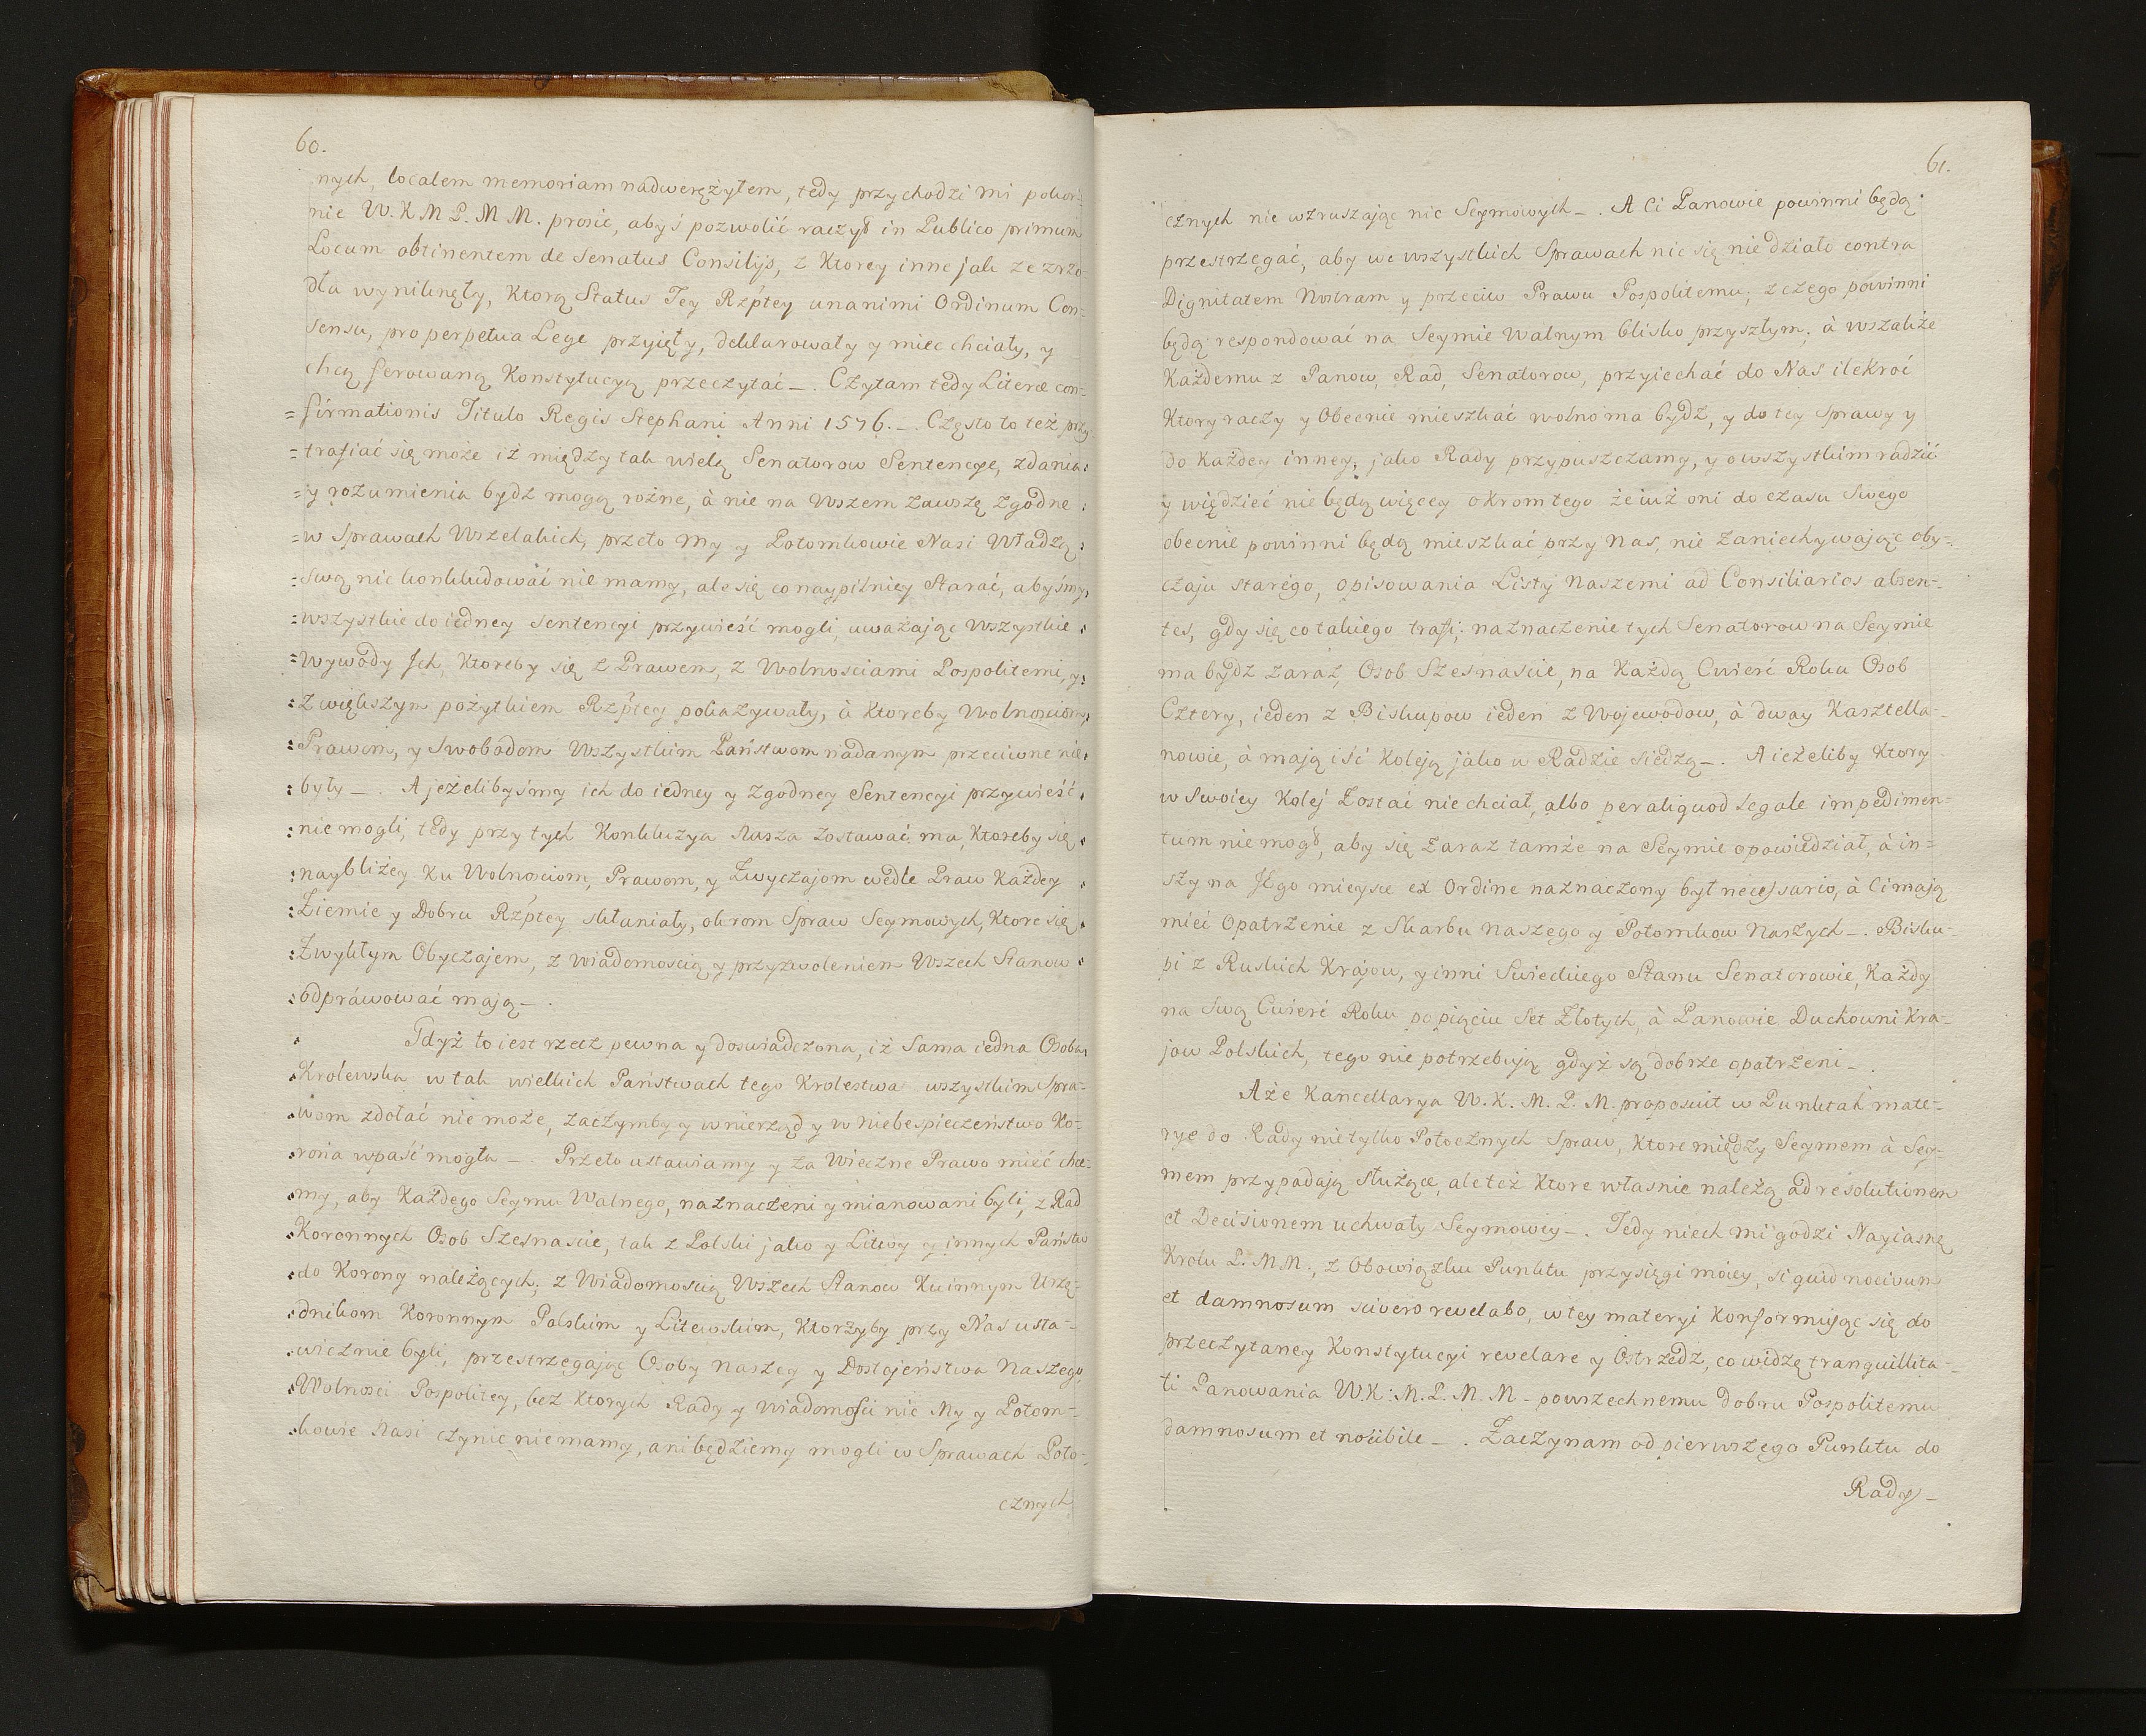 60.
nych, localem memoriam nadwerężyłem, tedy przychodzi mi pokor-
nie W. K M P. M M. prosić, abyś pozwolić raczył in Publico primum
Locum obtinentem de Senatus Consilijs, z Ktorey inne jak ze zrzo-
dła wyniknęły, Ktorą Status Tey Rzptey unanimi Ordinum Con-
sensu, pro perpetua Lege przyięły, deklarowały y miec chciały, y
chcą ferowaną Konstytucyą przeczytać _. Czytam tedy Literæ con-
= firmationis Titulo Regis Stephani Anni 1576. _. Często to też przy
= trafiać się może iż między tak wielą Senatorow Sentencye, zdania :
= y rozumienia bydz mogą rożne, à nie na Wszem zawszę zgodne :
= w Sprawach Wszelakich, przeto My y Potomkowie Nasi Władzą :
= swą nic konkludować nie mamy, ale się co naypilniey Starać, abyśmy :
= wszystkie do iedney sentencyi przywieść mogli, uważając Wszystkie :
= Wywody Jch, Ktoreby się z Prawem, z Wolnosciami Pospolitemi, y :
: z większym pożytkiem Rzptey pokazywały, à Ktoreby Wolnosciom,
: Prawom, y Swobodom Wszystkim Państwom nadanym przeciwne nie :
: były _. A jeżelibyśmy ich do iedney y zgodney Sentencyi przywieść :
: nie mogli, tedy przy tych Konkluzya Nasza zostawać ma, Ktoreby się :
: naybliżey Ku Wolnosciom, Prawom, y Zwyczajom wedle Praw Każdey :
: Ziemie y Dobru Rzptey skłaniały, okrom Spraw Seymowych, Ktore się :
: Zwykłym Obyczajem, z wiadomoscią y przyzwoleniem Wszech Stanow :
: odpráwować mają _.
Gdyż to iest rzecz pewna y doswiadczona, iż Sama iedna Osoba
Krolewska w tak wielkich Państwach tego Krolestwa wszystkim Spra-
wom zdołać nie może, zaczymby y w nierząd y w niebespieczeństwo Ko-
rona wpaść mogła _. Przeto ustawiamy y za Wieczne Prawo mieć chce-
my, aby Każdego Seymu Walnego, naznaczeni y mianowani byli, z Rad
Koronnych Osob Szesnascie, tak z Polski jako y Litwy y innych Państw
do Korony należących; z Wiadomoscią Wszech Stanow Ku innym Urzę-
dnikom Koronnym Polskim y Litewskim, Ktorzyby przy Nas usta-
wicznie byli, przestrzegając Osoby naszey y Dostojeństwa Naszego,
Wolnosci Pospolitey, bez Ktorych Rady y wiadomości nic My y Potom-
kowie Nasi czynic nie mamy, ani będziemy mogli w Sprawach Poto-
cznych
61.
cznych nie wzruszając nic Seymowych _. A Ci Panowie powinni będą
przestrzegać, aby we wszystkich Sprawach nic się nie działo contra
Dignitatem Nostram y przeciw Prawu Pospolitemu; z czego powinni
będą respondować na Seymie Walnym blisko przyszłym; à wszakże
Każdemu z Panow, Rad, Senatorow, przyiechać do Nas ilekroć
Ktory raczy y Obecnie mieszkać wolno ma bydz, y do tey Sprawy y
do Każdey inney, jako Rady przypuszczamy, y o wszystkim radzić
y więdzieć nie będą więcey okrom tego że iuż oni do czasu Swego
obecnie powinni będą mieszkać przy Nas, nie zaniechywając oby-
czaju starégo, opisowania Listy Naszemi ad Consiliarios absen-
tes, gdy się co takiego trafi; naznaczenie tych Senatorow na Seymie
ma bydz zaraz, Osob Szesnascie, na Każdą Cwierć Roku Osob
Cztery, ieden z Biskupow ieden z Wojewodow, à dway Kasztella-
nowie, à mają iść Koleją jako w Radzie siedzą _. A ieżeliby Ktory
w Swoiey Kolej Zostać nie chciał, albo per aliquod legale impedimen-
tum nie mogł, aby się Zaraz tamże na Seymie opowiedział, à in-
szy na Jego mieysce ex Ordine naznaczony był necessario, à Ci mają
mieć Opatrzenie z Skarbu Naszego y Potomkow Naszych _. Bisku-
pi z Ruskich Krájow, y inni Swieckiego Stanu Senatorowie, Każdy
na Swą Cwierć Roku po pięciu Set Złotych, à Panowie Duchowni Kra-
jow Polskich, tego nie potrzebują gdyż są dobrze opatrzeni _.
Aże Kancellarya W. K. M. P. M. proposuit w Punktah mate-
rye do Rady nie tylko Potocznych Spraw, Ktore między Seymem à Sey-
mem przypadają służące, ale też Ktore własnie należą ad resolutionem
et Decisionem uchwały Seymowey _. Tedy niech mi godzi Nayiasny
Krolu P. M M:, z Obowiązku Punktu przysięgi moiey, si quid nocivum
et damnosum scivero revelabo, w tey materyi Konformiując się do
przeczytaney Konstytucyi revelare y Ostrzedz, co widzę tranquillita-
ti Panowania W. K: M. P. M. M - powszechnemu dobru Pospolitemu
damnosum et nocibile _. Zaczynam od pierwszego Punktu do
Rady _